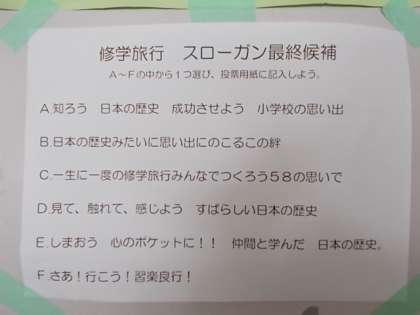 修学旅行　スローガン最終候補
A～Fの中から１つ選び、投票用紙に記入しよう。
A.知ろう　日本の歴史　成功させよう　小学校の思い出
B.日本の歴史みたいに思い出にのこるこの絆
C.一生に一度の修学旅行みんなでつくろう５８の思いで
D.見て、触れて、感じよう　すばらしい日本の歴史
E.しまおう　心のポケットに！！　仲間と学んだ　日本の歴史。
F.さあ！行こう！習楽良行！